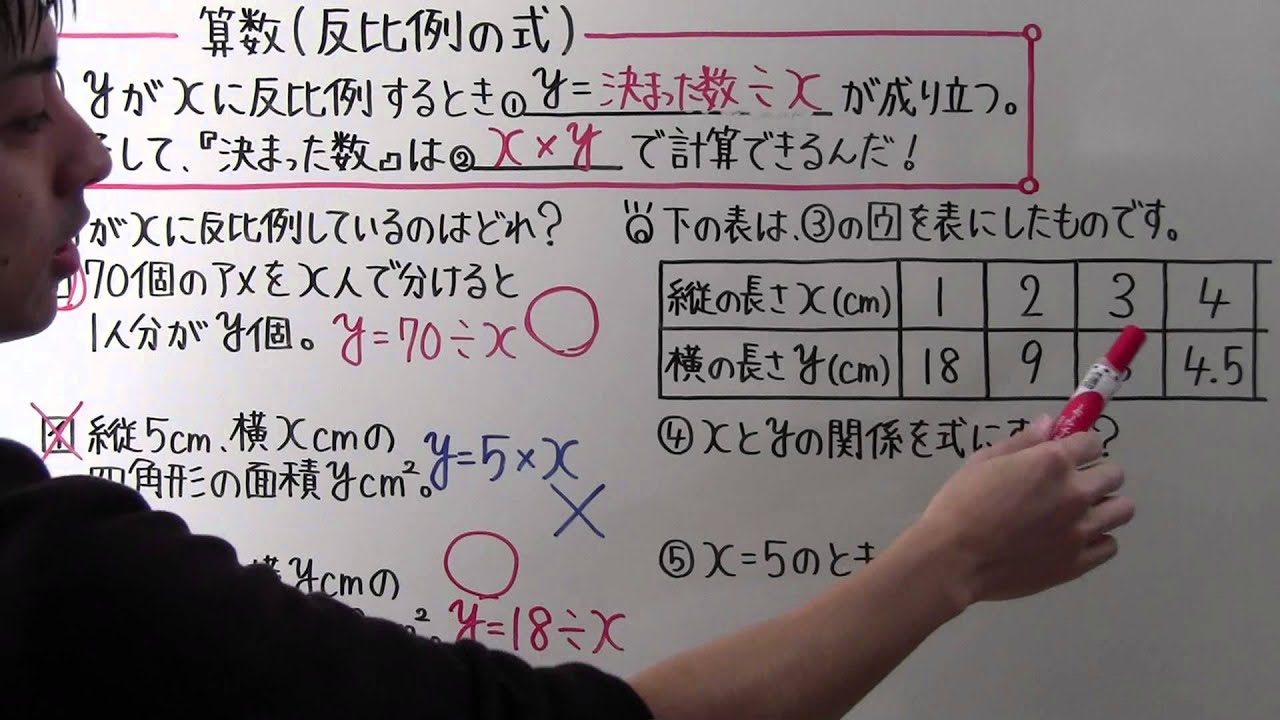 算数(反比例の式)
yがxに反比例するとき①y=決まった数÷xが成り立つ。
して、『決まった数』は②x×yで計算できるんだ!
がxに反比例しているのはどれ?
70個のアメをx人で分けると
1人分がy個。y=70÷x
縦5cm、横xcmの
四角形の面積ycm²。y=5×x
横ycmの
y=18÷x
下の表は、③のウを表にしたものです。
縦の長さx(cm) 1 2 3 4
横の長さy(cm) 18 9 4.5
④xとyの関係を式に
⑤x=5のとき